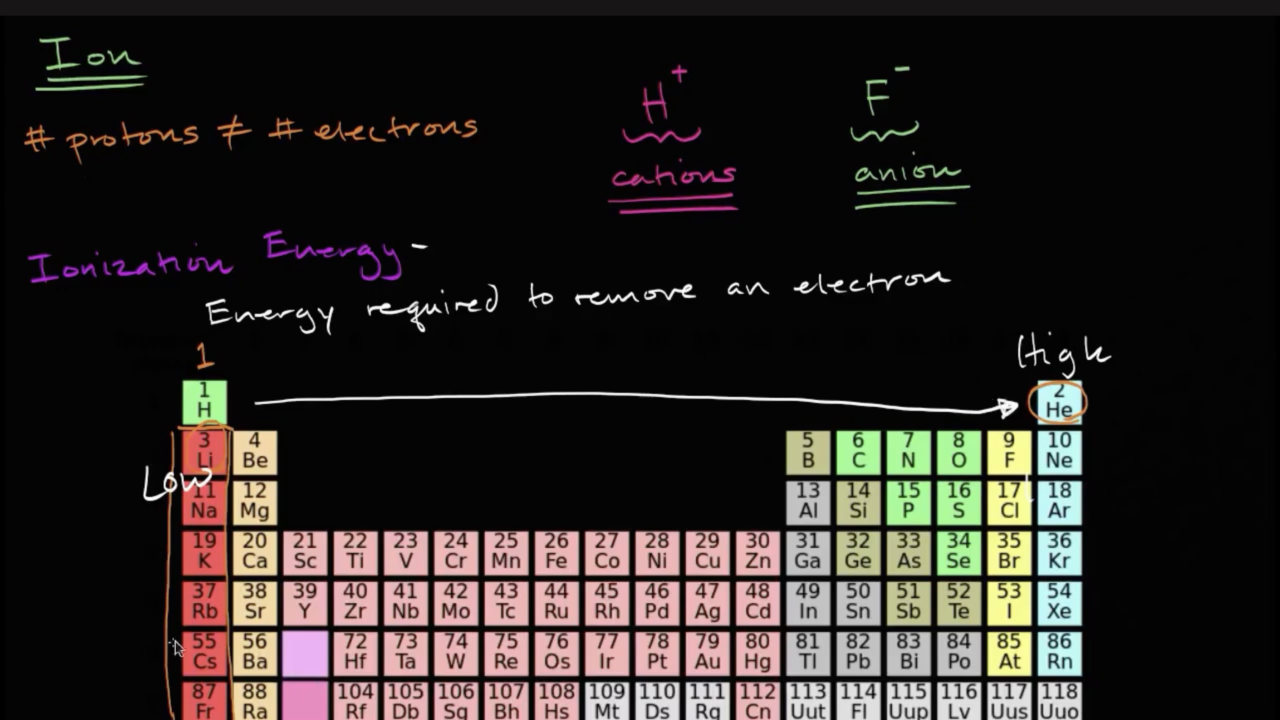 Ion
# protons ≠ # electrons
H+ F-
cations anion
Ionization Energy -
Energy required to remove an electron
1 High
1 2
H He
3 4 5 6 7 8 9 10
Li Be B C N O F Ne
Low
11 12 13 14 15 16 17 18
Na Mg Al Si P S Cl Ar
19 20 21 22 23 24 25 26 27 28 29 30 31 32 33 34 35 36
K Ca Sc Ti V Cr Mn Fe Co Ni Cu Zn Ga Ge As Se Br Kr
37 38 39 40 41 42 43 44 45 46 47 48 49 50 51 52 53 54
Rb Sr Y Zr Nb Mo Tc Ru Rh Pd Ag Cd In Sn Sb Te I Xe
55 56 72 73 74 75 76 77 78 79 80 81 82 83 84 85 86
Cs Ba Hf Ta W Re Os Ir Pt Au Hg Tl Pb Bi Po At Rn
87 88 104 105 106 107 108 109 110 111 112 113 114 115 116 117 118
Fr Ra Rf Db Sg Bh Hs Mt Ds Rg Cn Uut Fl Uup Lv Uus Uuo